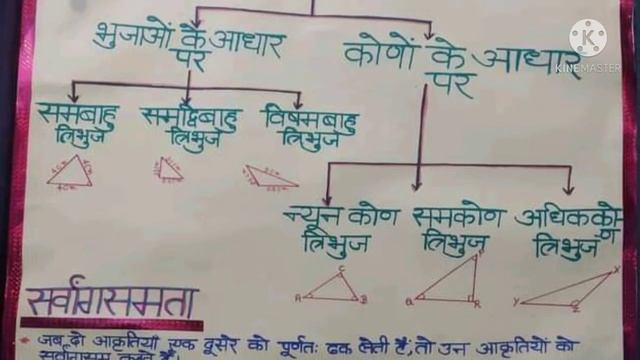 भुजाओं के आधार
पर
कोणों के आधार
पर
KINEMASTER
समबाहु
त्रिभुज
समद्विबाहु
त्रिभुज
विषमबाहु
त्रिभुज
न्यून कोण
त्रिभुज
समकोण
त्रिभुज
अधिककोण
त्रिभुज
A B C
Q R
X Y Z
सर्वांगसमता
* जब दो आकृतियाँ एक दूसरे को पूर्णतः ढक लेती हैं, तो उन आकृतियों को
सर्वांगसम कहते हैं।